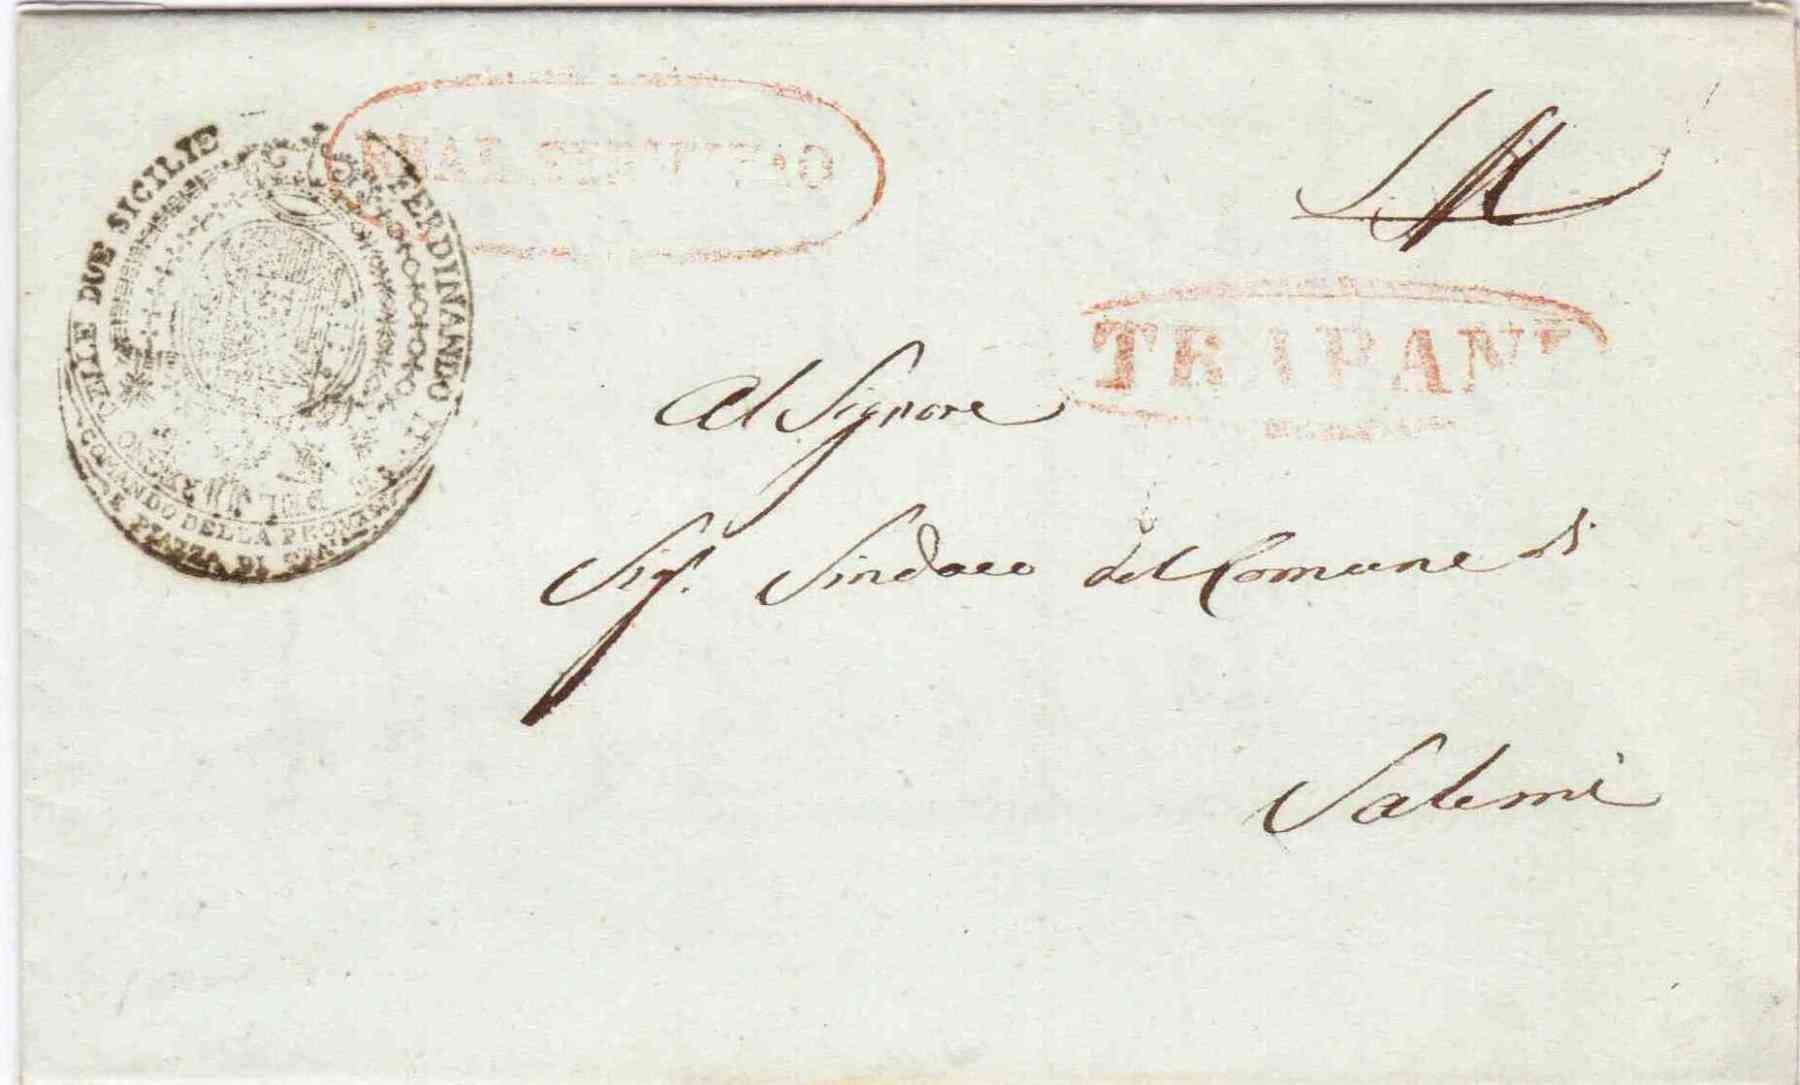 REAL SERVIZIO
FERDINANDO II
DELLE DUE SICILIE
COMANDO DELLA PROVINCIA
E PIAZZA DI
TRAPANI
Al Signore
Sig.r Sindaco del Comune di
Salemi